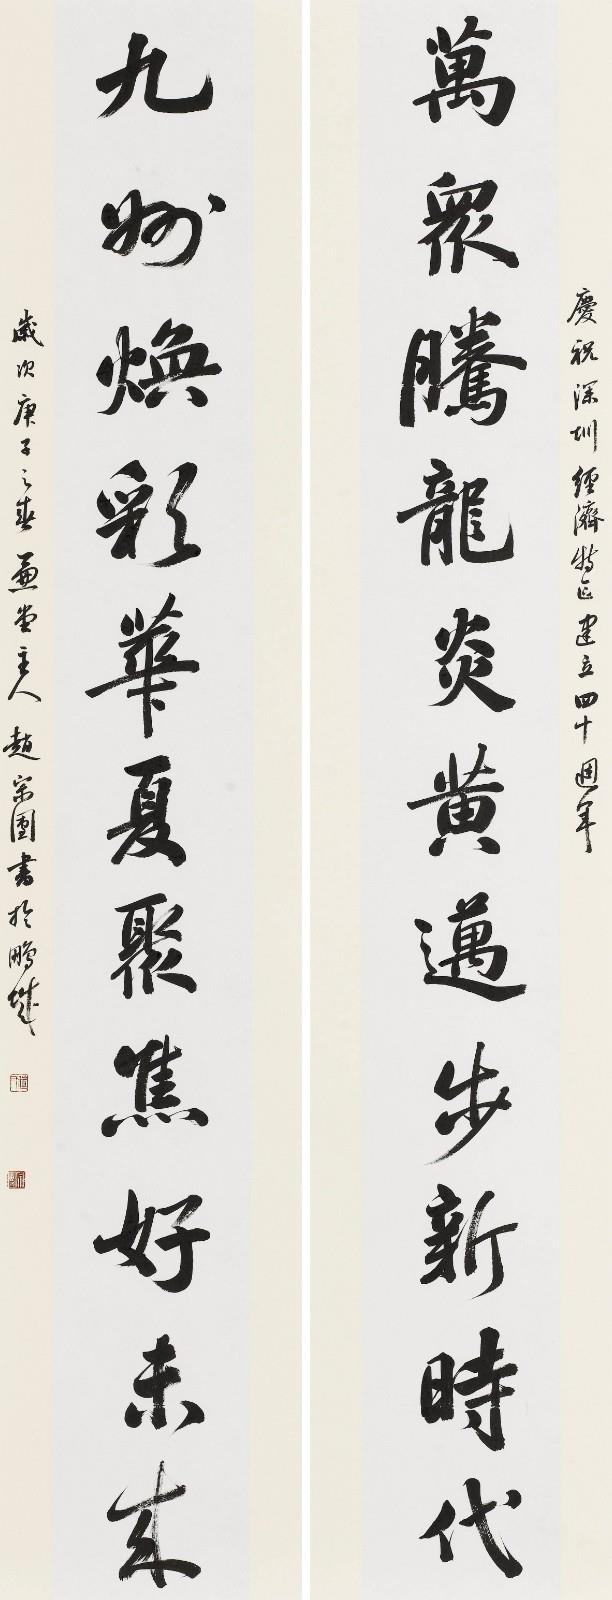 慶祝深圳經濟特区建立四十週年
萬眾騰龍炎黄邁步新時代
九州焕彩華夏聚焦好未来
歲次庚子之春蕙堂主人趙宗團書於鹏城